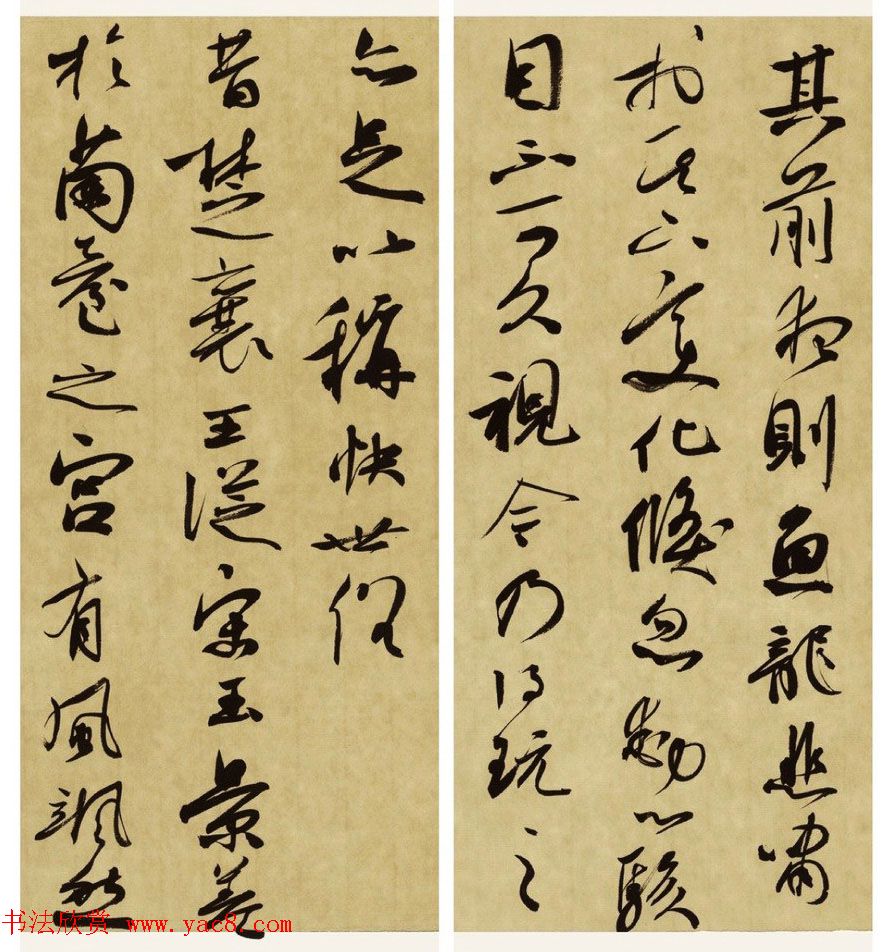 其前夜則魚龍悲嘯
於其下變化倏忽動心駭
目不可久視今乃得玩之
亦足以稱快世俗
昔楚襄王從宋玉景差
於蘭臺之宮有風颯然
书法欣赏 www.yac8.com